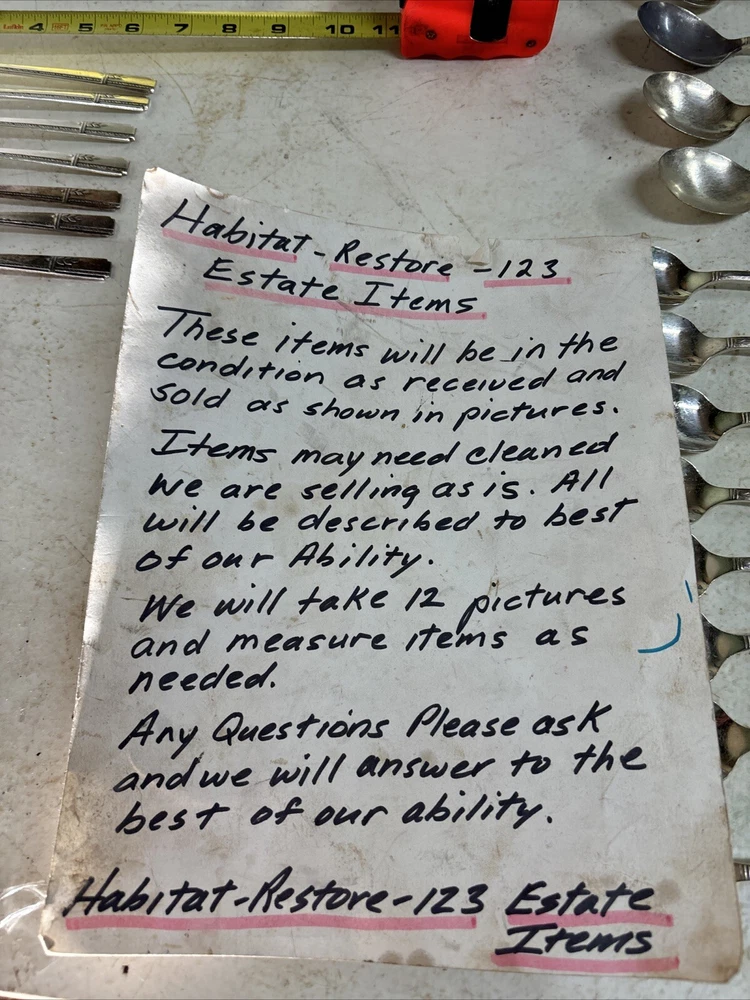 Lufkin 4 5 6 7 8 9 10 11
Habitat-Restore-123
Estate Items
These items will be in the
condition as received and
sold as shown in pictures.
Items may need cleaned
we are selling as is. All
will be described to best
of our Ability.
We will take 12 pictures
and measure items as
needed.
Any Questions Please ask
and we will answer to the
best of our ability.
Habitat-Restore-123 Estate
Items